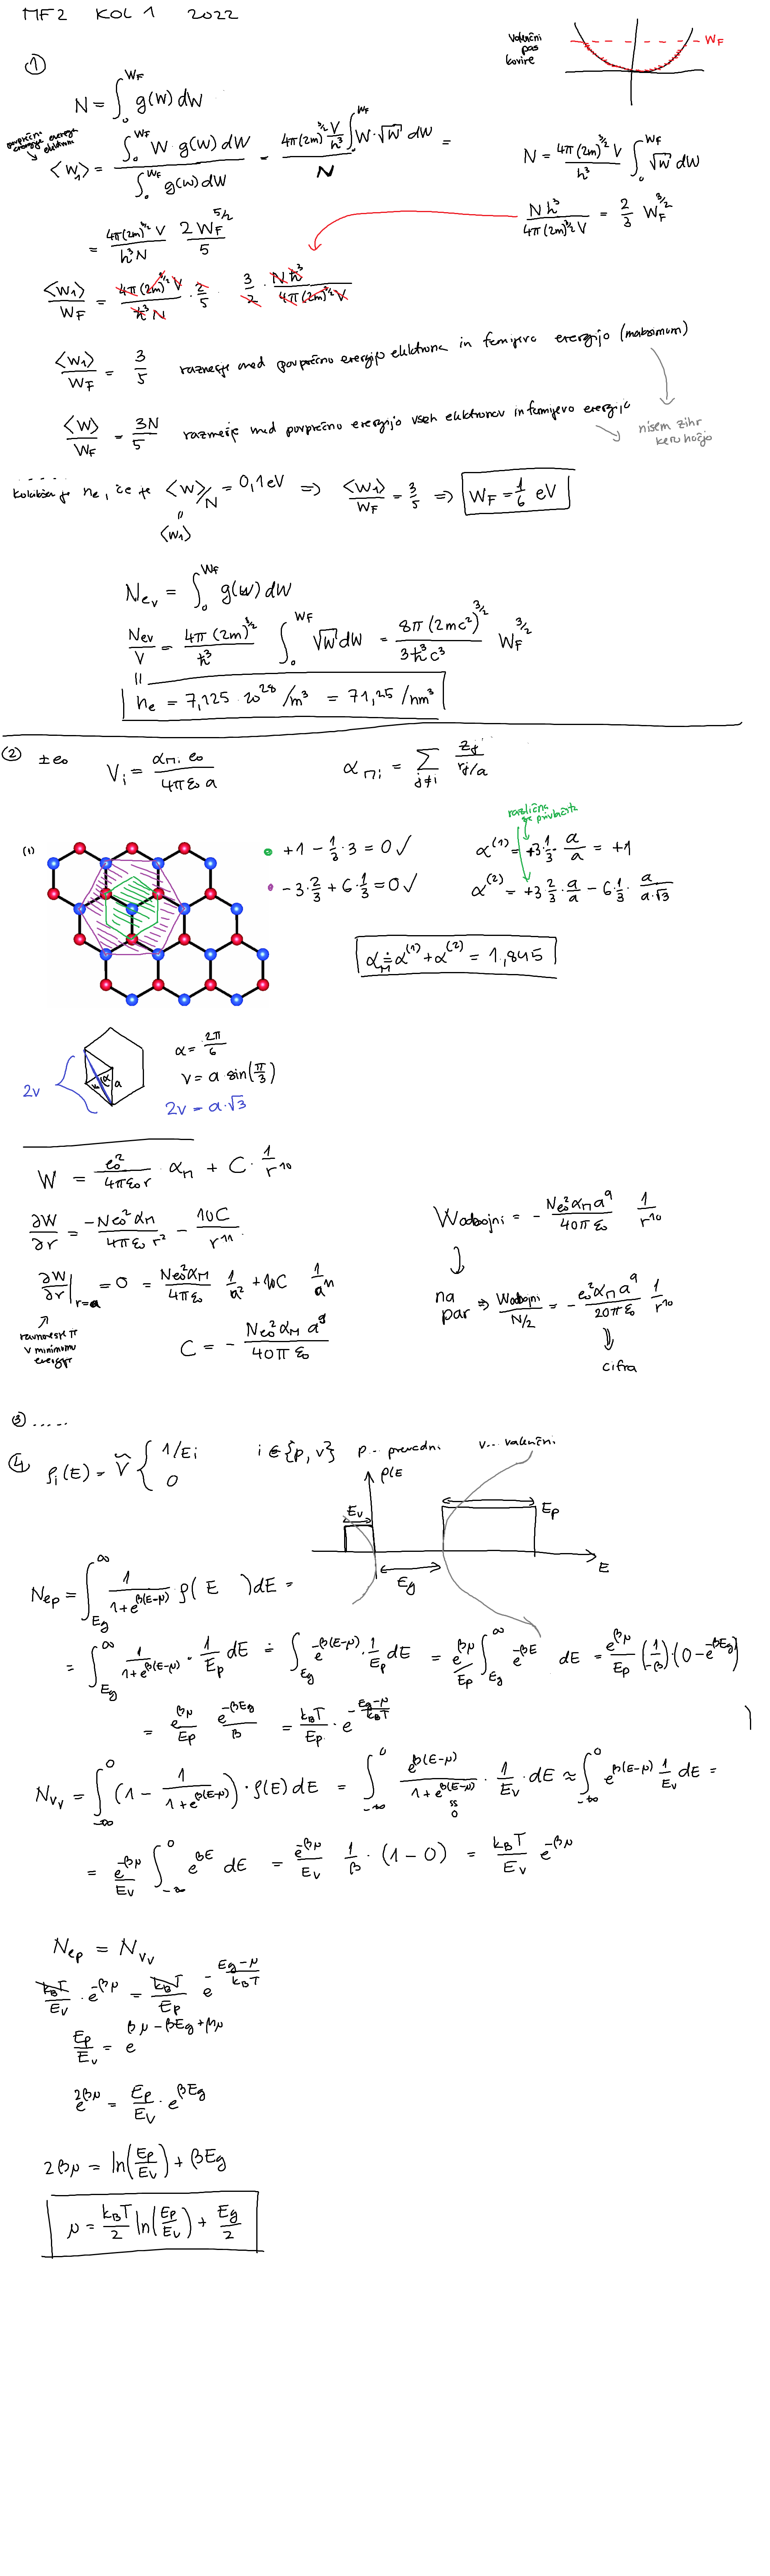 MF2 KOL 1 2022
valenčni pas kovine
W_F
①
N = ∫₀^{W_F} g(W) dW
povprečna energija enega elektrona
⟨W₁⟩ = ∫₀^{W_F} W · g(W) dW / ∫₀^{W_F} g(W) dW = 4π(2m)^{3/2} V/h³ ∫₀^{W_F} W·√W dW / N =
N = 4π(2m)^{3/2} V / h³ ∫₀^{W_F} √W dW
= 4π(2m)^{3/2} V / h³N · 2 W_F^{5/2} / 5
N h³ / 4π(2m)^{3/2} V = 2/3 W_F^{3/2}
⟨W₁⟩/W_F = 4π(2m)^{3/2} V / h³ N · 2/5 · 3/2 · N h³ / 4π(2m)^{3/2} V
⟨W₁⟩/W_F = 3/5 razmerje med povprečno energijo elektrona in fermijevo energijo (maksimum)
⟨W⟩/W_F = 3N/5 razmerje med povprečno energijo vseh elektronov in fermijevo energijo
nisem zihr
kero hočjo
kolikšen je n_e, če je ⟨W⟩/N = 0,1 eV ⇒ ⟨W₁⟩/W_F = 3/5 ⇒ W_F = 1/6 eV
=
⟨W₁⟩
N_{ev} = ∫₀^{W_F} g(W) dW
N_{ev}/V = 4π(2m)^{3/2} / h³ ∫₀^{W_F} √W dW = 8π(2mc²)^{3/2} / 3h³c³ W_F^{3/2}
=
n_e = 7,125 · 10²⁸ /m³ = 71,25 /nm³
② ±e₀ V_i = α_{Mi} e₀ / 4πε₀ a α_{Mi} = Σ_{j≠i} z_j / r_j/a
različne se privlačita
(1) +1 − 1/3 · 3 = 0 ✓ α⁽¹⁾ = +3·1/3 · a/a = +1
−3·2/3 + 6·1/3 = 0 ✓ α⁽²⁾ = +3·2/3 · a/a − 6·1/3 · a/a·√3
α_M ≐ α⁽¹⁾ + α⁽²⁾ = 1,845
α = 2π/6
v = a sin(π/3)
2v 2v = a·√3
v α a
W = e₀² / 4πε₀ r · α_M + C · 1/r¹⁰
∂W/∂r = −Ne₀² α_M / 4πε₀ r² − 10C / r¹¹
W odbojni = − Ne₀² α_M a⁹ / 40πε₀ 1/r¹⁰
∂W/∂r |_{r=a} = 0 = Ne₀² α_M / 4πε₀ 1/a² + 10C 1/a¹¹
na par ⇒ W odbojni / N/2 = − e₀² α_M a⁹ / 20πε₀ 1/r¹⁰
ravnovesje je v minimumu energije
C = − Ne₀² α_M a⁹ / 40πε₀
cifra
③ .....
④ ρ_i(E) = Ṽ { 1/E_i 0 i ∈ {p, v} p.. prevodni v... valenčni
ρ(E
E_v E_p
E_g E
N_{ep} = ∫_{E_g}^∞ 1/1+e^{β(E−μ)} · ρ( E ) dE =
= ∫_{E_g}^∞ 1/1+e^{β(E−μ)} · 1/E_p dE ≐ ∫_{E_g} e^{−β(E−μ)} · 1/E_p dE = e^{βμ}/E_p ∫_{E_g}^∞ e^{−βE} dE = e^{βμ}/E_p (1/−β)·(0−e^{−βE_g})
= e^{βμ}/E_p e^{−βE_g}/β = k_BT/E_p · e^{−(E_g−μ)/k_BT}
N_{vv} = ∫_{−∞}^0 (1 − 1/1+e^{β(E−μ)}) · ρ(E) dE = ∫_{−∞}^0 e^{β(E−μ)} / 1+e^{β(E−μ)} · 1/E_v · dE ≈ ∫_{−∞}^0 e^{β(E−μ)} 1/E_v dE =
0
= e^{−βμ}/E_v ∫_{−∞}^0 e^{βE} dE = e^{−βμ}/E_v 1/β · (1−0) = k_BT/E_v e^{−βμ}
N_{ep} = N_{vv}
k_BT/E_v · e^{−βμ} = k_BT/E_p e^{−(E_g−μ)/k_BT}
E_p/E_v = e^{βμ−βE_g+βμ}
e^{2βμ} = E_p/E_v · e^{βE_g}
2βμ = ln(E_p/E_v) + βE_g
μ = k_BT/2 ln(E_p/E_v) + E_g/2